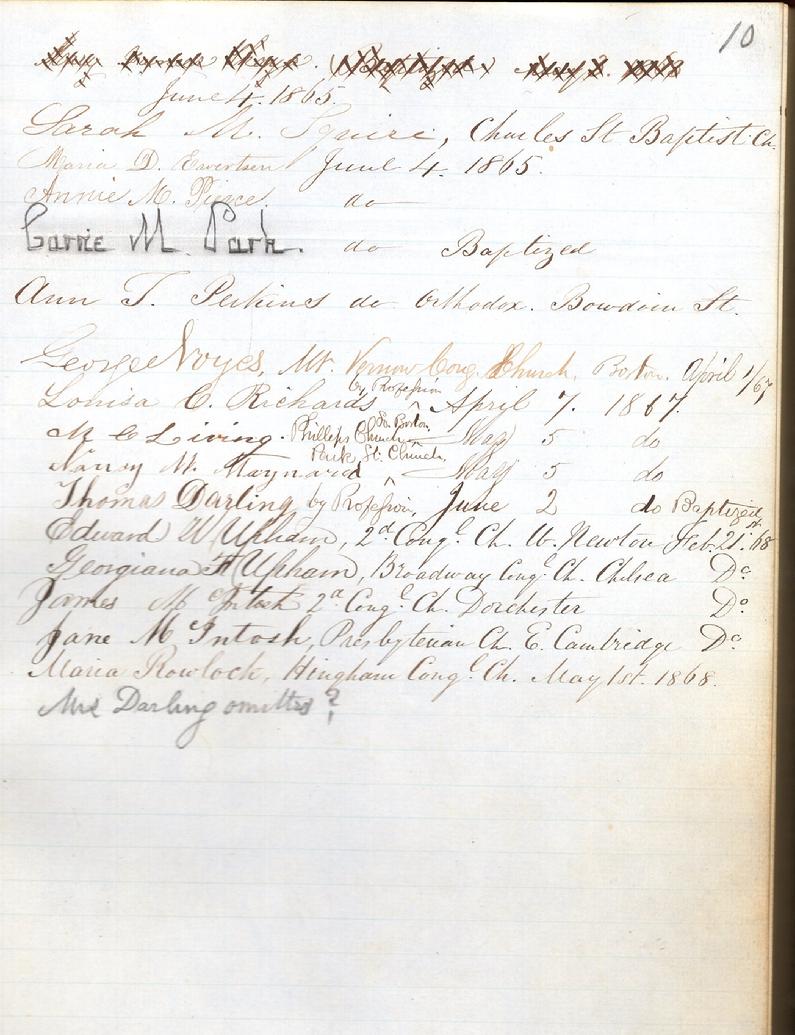 10
June 4. 1865.
Sarah M. Squire, Charles St Baptist Ch.
Maria D. Evertsen June 4. 1865.
Annie M. Pierce. do
Carrie M. Park. do Baptized
Ann T. Perkins do Orthodox. Bowdoin St.
George Noyes, Mt. Vernon Cong. Church, Boston. April 1/67
Louisa C. Richards by Profession April 7. 1867.
M C Living Phillips Church So. Boston May 5 do
Nancy M. Maynard Park St. Church May 5 do
Thomas Darling by Profession, June 2 do Baptized
Edward W Upham, 2d Congl. Ch. W. Newton Feb. 21st. 68
Georgiana F Upham, Broadway Congl. Ch. Chelsea Do
James McIntosh 2d Congl. Ch. Dorchester Do
Jane McIntosh, Presbyterian Ch. E. Cambridge Do
Maria Rowlock, Hingham Congl. Ch. May 1st. 1868.
Mrs Darling omitted?